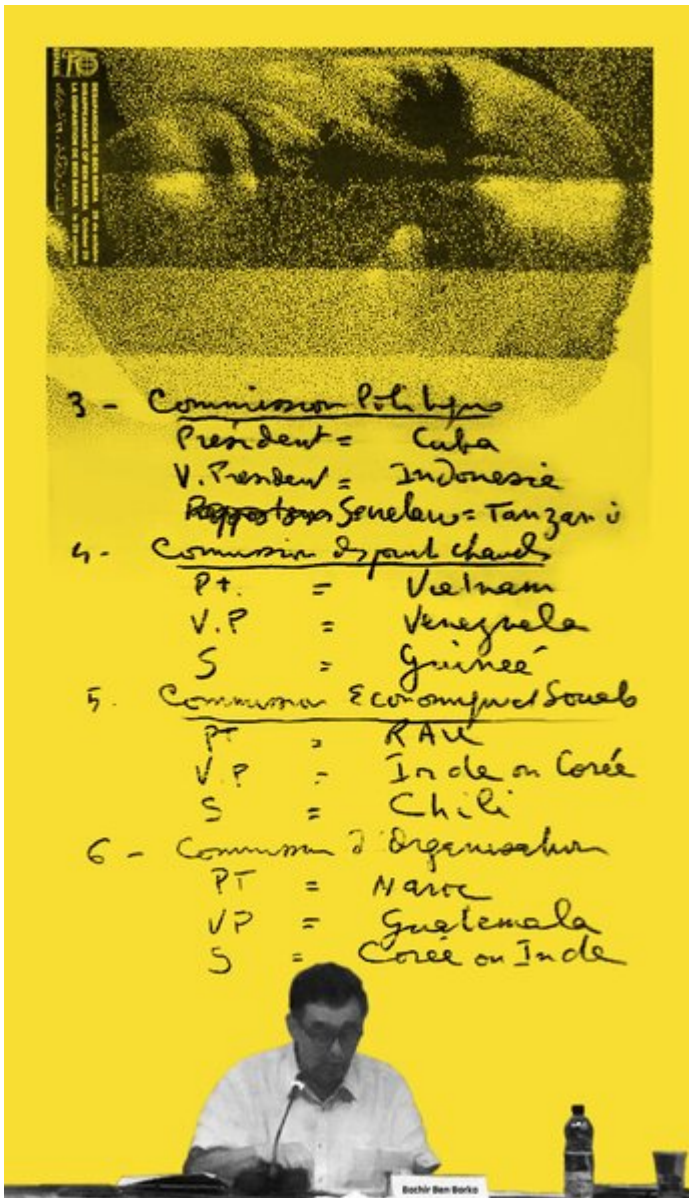 3 - Commission Politique
Président = Cuba
V. President = Indonesie
= Tanzani
4 - Commission chauds
Pt. = Vietnam
V.P = Venezuela
S = Guineé
5. Commission Economique et Sociale
PT = RAU
V.P = Inde ou Corée
S = Chili
6 - Commission d'Organisation
PT = Maroc
VP = Guatemala
S = Corée ou Inde
Bachir Ben Barka